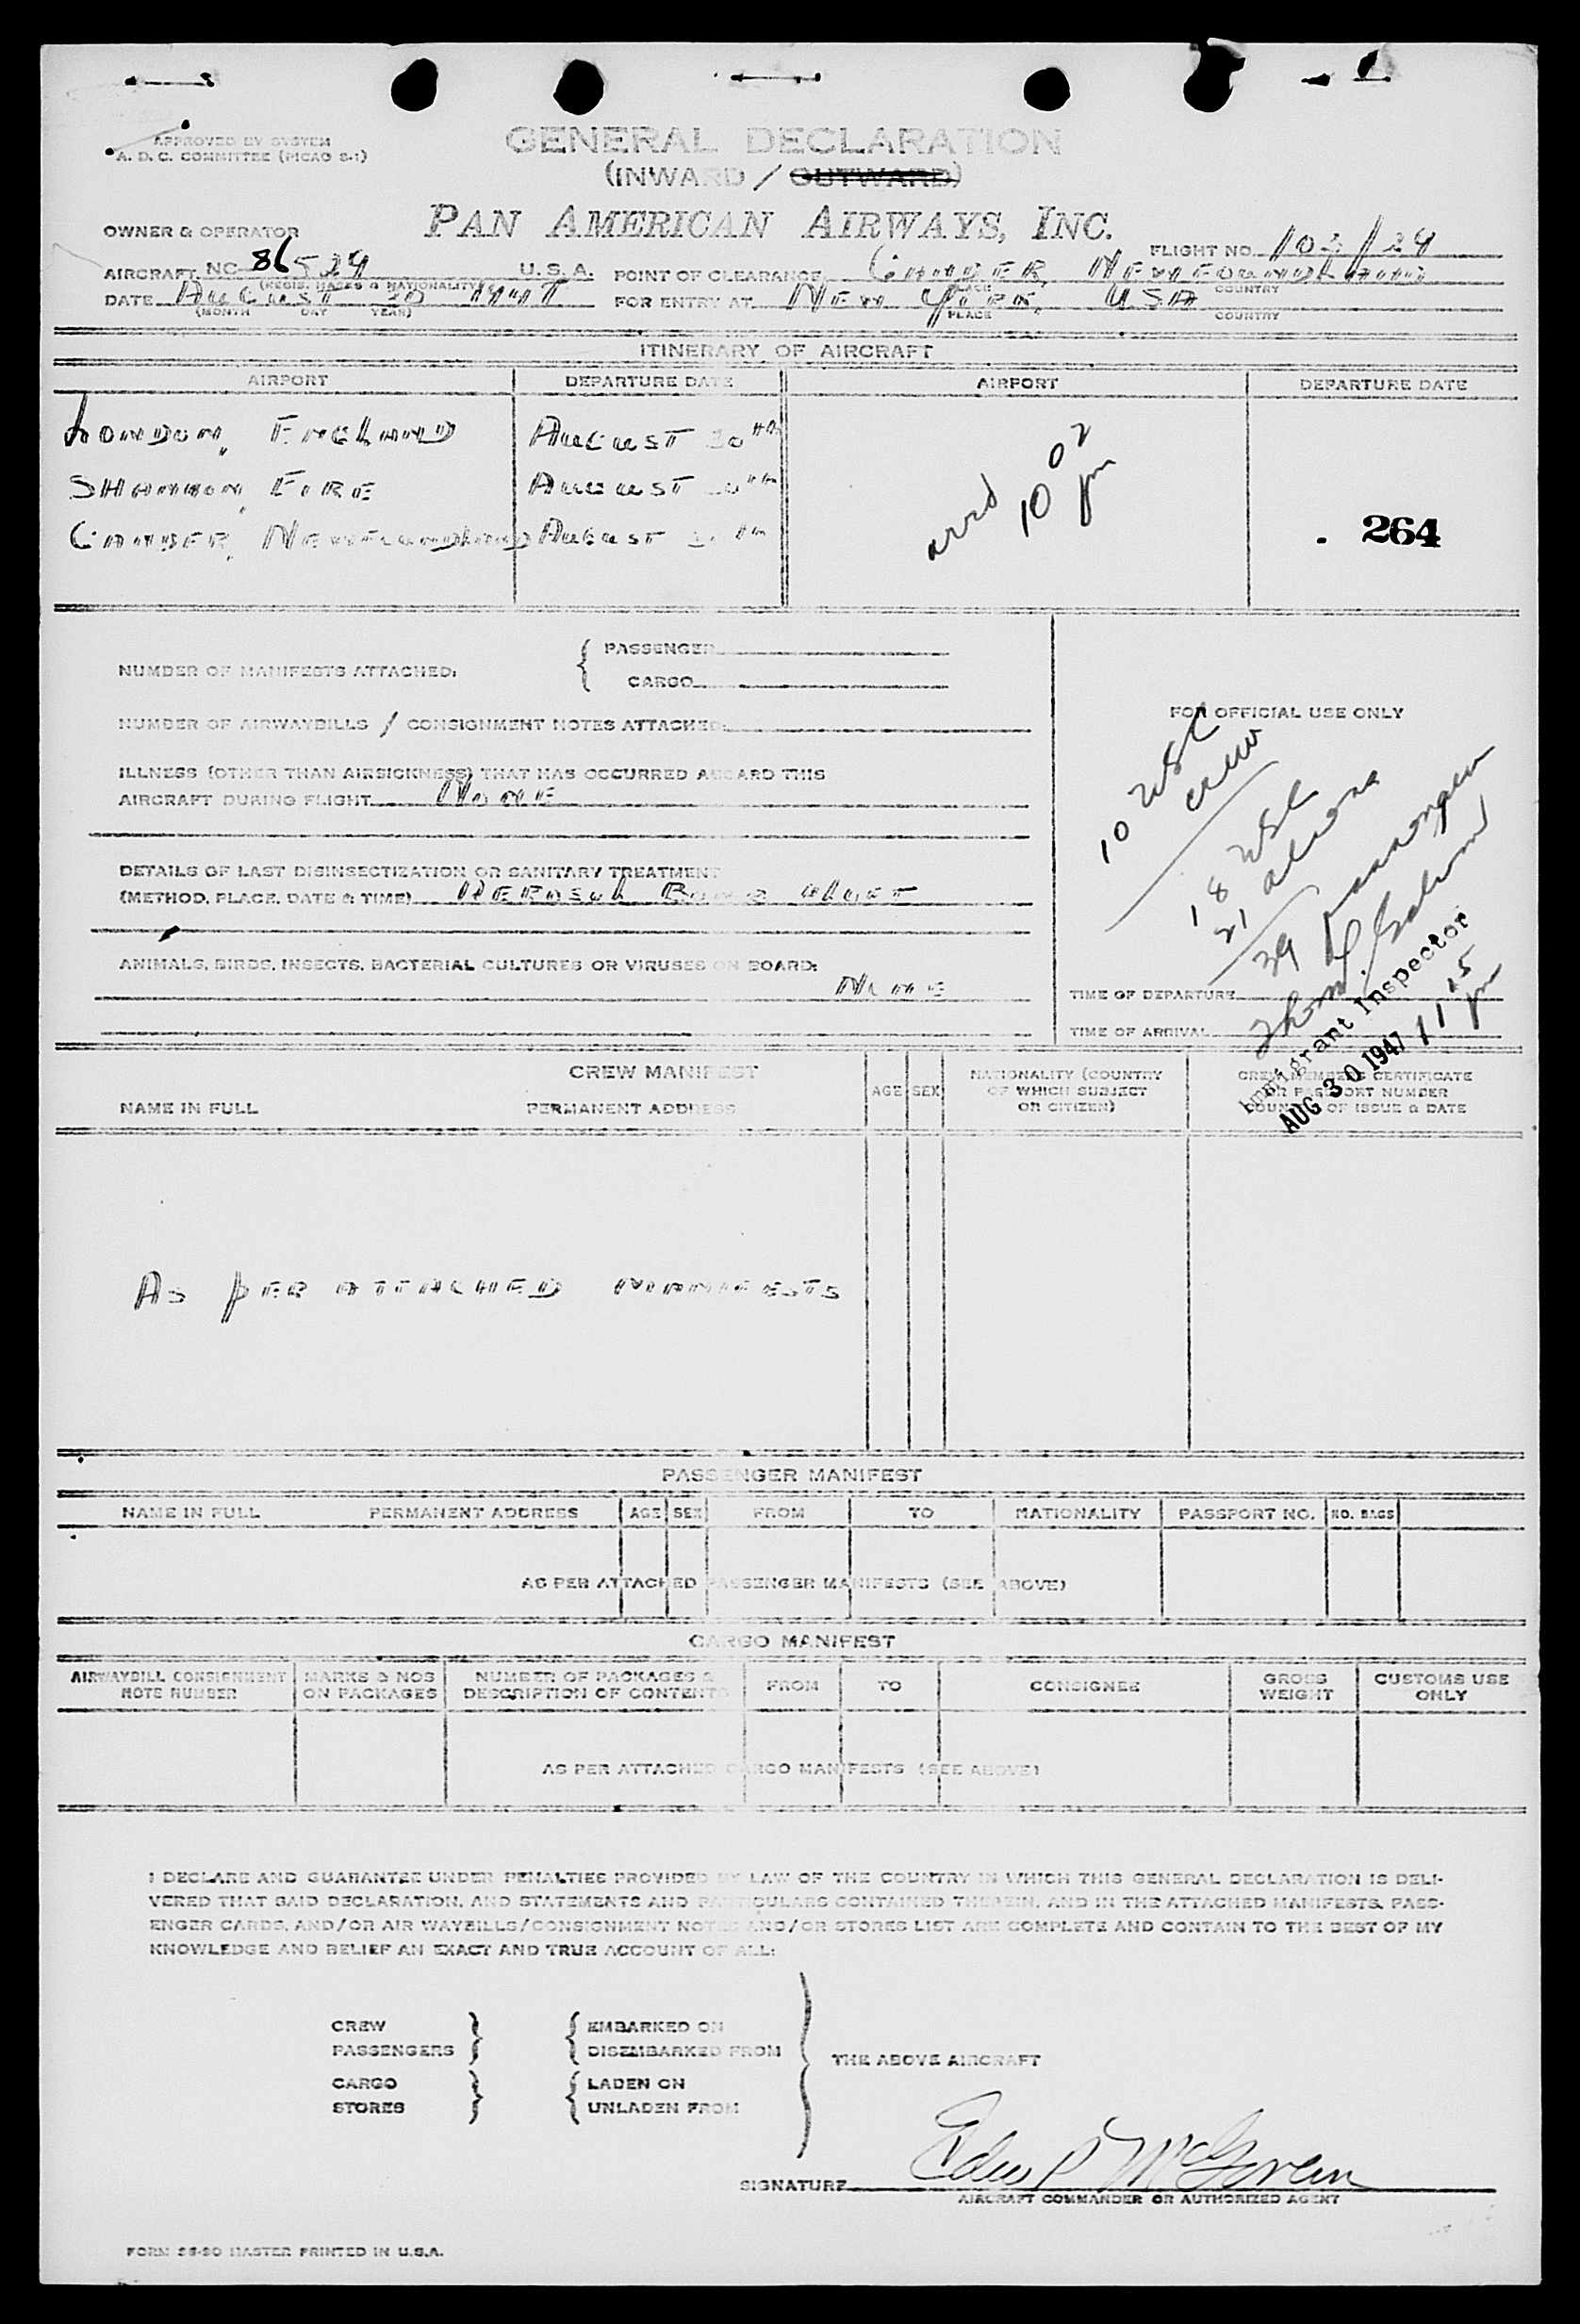 APPROVED BY SYSTEM
A. D. C. COMMITTEE (PICAO S-1)
GENERAL DECLARATION
(INWARD / OUTWARD)
OWNER & OPERATOR PAN AMERICAN AIRWAYS, INC.
FLIGHT NO.
AIRCRAFT NC 86529 U. S. A. POINT OF CLEARANCE GANDER, NEWFOUNDLAND
(REGIS. MARKS & NATIONALITY) PLACE COUNTRY
DATE AUGUST 30 1947 FOR ENTRY AT NEW YORK, USA
(MONTH DAY YEAR) PLACE COUNTRY
ITINERARY OF AIRCRAFT
AIRPORT DEPARTURE DATE AIRPORT DEPARTURE DATE
LONDON, ENGLAND AUGUST 30TH
SHANNON, EIRE AUGUST
GANDER, NEWFOUNDLAND AUGUST
arrd 10 02 pm
264
NUMBER OF MANIFESTS ATTACHED: { PASSENGER
CARGO
NUMBER OF AIRWAYBILLS / CONSIGNMENT NOTES ATTACHED:
ILLNESS (OTHER THAN AIRSICKNESS) THAT HAS OCCURRED ABOARD THIS
AIRCRAFT DURING FLIGHT NONE
DETAILS OF LAST DISINSECTIZATION OR SANITARY TREATMENT
(METHOD, PLACE, DATE & TIME) AEROSOL BOMB
ANIMALS, BIRDS, INSECTS, BACTERIAL CULTURES OR VIRUSES ON BOARD:
NONE
FOR OFFICIAL USE ONLY
10 USC crew
18 USC
21 aliens
39 passengers
Immigrant Inspector
AUG 30 1947 11 15 pm
TIME OF DEPARTURE
TIME OF ARRIVAL
CREW MANIFEST
NAME IN FULL PERMANENT ADDRESS AGE SEX NATIONALITY (COUNTRY OF WHICH SUBJECT OR CITIZEN) CREW MEMBERS CERTIFICATE OR PASSPORT NUMBER COUNTRY OF ISSUE & DATE
AS PER ATTACHED MANIFESTS
PASSENGER MANIFEST
NAME IN FULL PERMANENT ADDRESS AGE SEX FROM TO NATIONALITY PASSPORT NO. NO. BAGS
AS PER ATTACHED PASSENGER MANIFESTS (SEE ABOVE)
CARGO MANIFEST
AIRWAYBILL CONSIGNMENT NOTE NUMBER MARKS & NOS ON PACKAGES NUMBER OF PACKAGES & DESCRIPTION OF CONTENTS FROM TO CONSIGNEE GROSS WEIGHT CUSTOMS USE ONLY
AS PER ATTACHED CARGO MANIFESTS (SEE ABOVE)
I DECLARE AND GUARANTEE UNDER PENALTIES PROVIDED BY LAW OF THE COUNTRY IN WHICH THIS GENERAL DECLARATION IS DELI-
VERED THAT SAID DECLARATION, AND STATEMENTS AND PARTICULARS CONTAINED THEREIN, AND IN THE ATTACHED MANIFESTS, PASS-
ENGER CARDS, AND/OR AIR WAYBILLS/CONSIGNMENT NOTES AND/OR STORES LIST ARE COMPLETE AND CONTAIN TO THE BEST OF MY
KNOWLEDGE AND BELIEF AN EXACT AND TRUE ACCOUNT OF ALL:
CREW } { EMBARKED ON
PASSENGERS } { DISEMBARKED FROM
THE ABOVE AIRCRAFT
CARGO } { LADEN ON
STORES } { UNLADEN FROM
SIGNATURE
AIRCRAFT COMMANDER OR AUTHORIZED AGENT
FORM 25-20 MASTER PRINTED IN U.S.A.